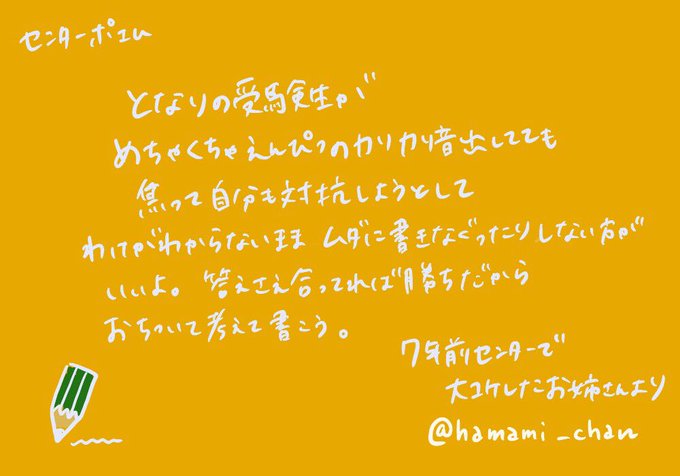 センターポエム
となりの受験生が
めちゃくちゃえんぴつのカリカリ音出してても
焦って自分も対抗しようとして
わけがわからないまま ムダに書きなぐったりしない方が
いいよ。答えさえ合ってれば勝ちだから
おちついて考えて書こう。
7年前センターで
大コケしたお姉さんより
@hamami_chan